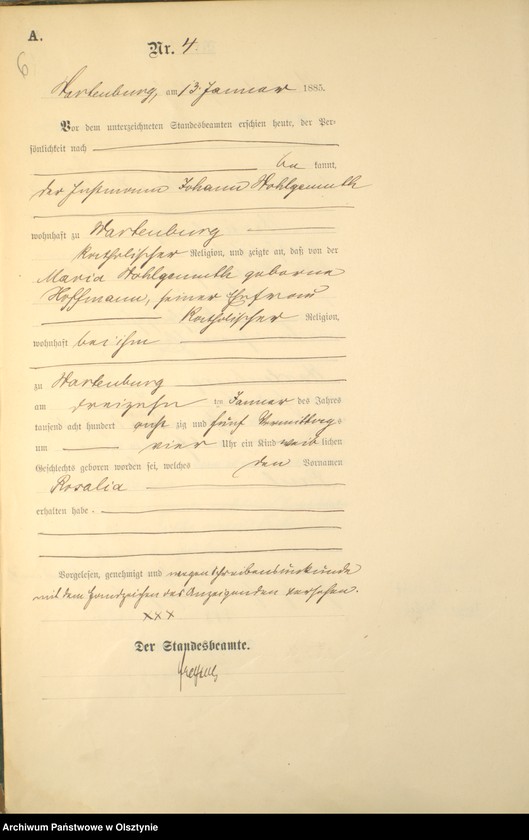 A.
6
Nr. 4
Wartenburg, am 13. Januar 1885.
Vor dem unterzeichneten Standesbeamten erschien heute, der Per-
sönlichkeit nach
be kannt,
der Instmann Johann Wohlgemuth
wohnhaft zu Wartenburg
katholischer Religion, und zeigte an, daß von der
Maria Wohlgemuth geborene
Hoffmann, seiner Ehefrau
katholischer Religion,
wohnhaft bei ihm
zu Wartenburg
am dreizehn ten Januar des Jahres
tausend acht hundert acht zig und fünf Vormittags
um vier Uhr ein Kind weib lichen
Geschlechts geboren worden sei, welches den Vornamen
Rosalia
erhalten habe.
Vorgelesen, genehmigt und wegen Schreibensunkunde
mit dem Handzeichen des Anzeigenden versehen.
XXX
Der Standesbeamte.
Archiwum Państwowe w Olsztynie